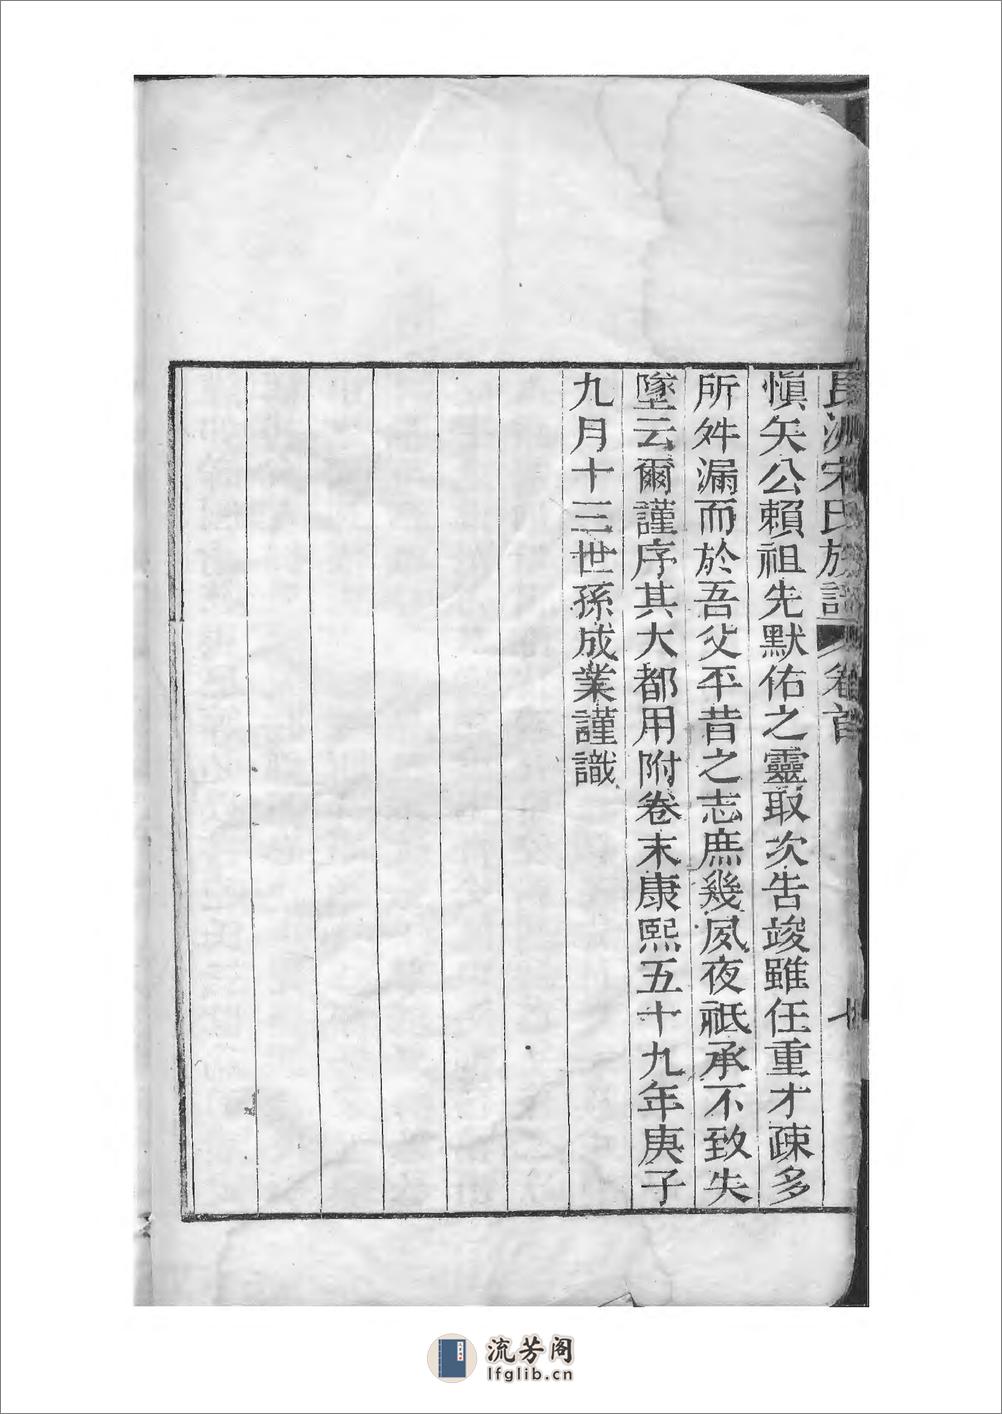 長洲宋氏族譜 卷首
愼矢公賴祖先默佑之靈取次告竣雖任重才疎多
所舛漏而於吾父平昔之志庶幾夙夜祇承不致失
墜云爾謹序其大都用附卷末康熙五十九年庚子
九月十三世孫成業謹識
流芳阁
lfglib.cn